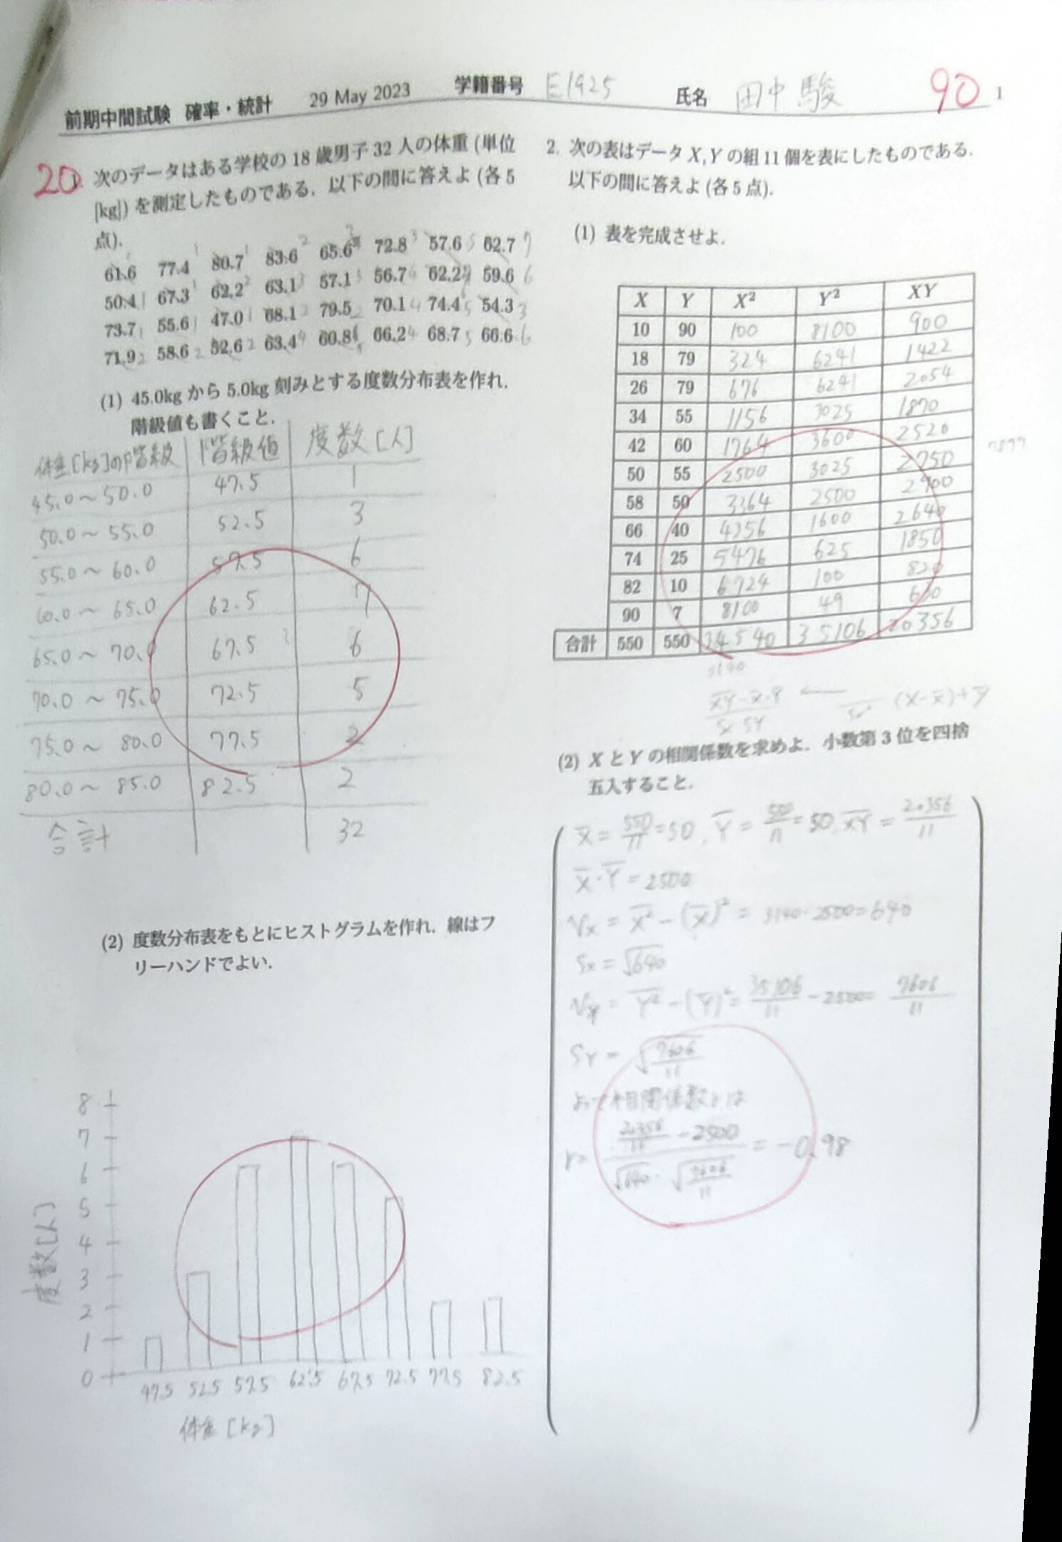 前期中間試験 確率・統計 29 May 2023 学籍番号 E1925 氏名 田中駿 90 1
20 次のデータはある学校の 18 歳男子 32 人の体重 (単位
[kg]) を測定したものである. 以下の問に答えよ (各 5
点).
61.6 77.4 80.7 83.6 65.6 72.8 57.6 62.7
50.4 67.3 62.2 63.1 57.1 56.7 62.2 59.6
73.7 55.6 47.0 68.1 79.5 70.1 74.4 54.3
71.9 58.6 52.6 63.4 60.8 66.2 68.7 66.6
(1) 45.0kg から 5.0kg 刻みとする度数分布表を作れ.
階級値も書くこと.
体重[kg]の階級 階級値 度数[人]
45.0～50.0 47.5 1
50.0～55.0 52.5 3
55.0～60.0 57.5 6
60.0～65.0 62.5 7
65.0～70.0 67.5 6
70.0～75.0 72.5 5
75.0～80.0 77.5 2
80.0～85.0 82.5 2
合計 32
(2) 度数分布表をもとにヒストグラムを作れ. 線はフ
リーハンドでよい.
8
7
6
5
4
3
2
1
0
度数[人]
47.5 52.5 57.5 62.5 67.5 72.5 77.5 82.5
体重[kg]
2. 次の表はデータ X, Y の組 11 個を表にしたものである.
以下の問に答えよ (各 5 点).
(1) 表を完成させよ.
X Y X² Y² XY
10 90 100 8100 900
18 79 324 6241 1422
26 79 676 6241 2054
34 55 1156 3025 1870
42 60 1764 3600 2520
50 55 2500 3025 2750
58 50 3364 2500 2900
66 40 4356 1600 2640
74 25 5476 625 1850
82 10 6724 100 820
90 7 8100 49 630
合計 550 550 34540 35106 20356
(2) X と Y の相関係数を求めよ. 小数第 3 位を四捨
五入すること.
X̄ = 550/11 = 50, Ȳ = 550/11 = 50, X̄Ȳ = 20356/11
X̄・Ȳ = 2500
Vx = X̄² - (X̄)² = 3140 - 2500 = 640
Sx = √640
VY = Ȳ² - (Ȳ)² = 35106/11 - 2500 = 7606/11
SY = √7606/11
よって相関係数rは
r = (20356/11 - 2500)/(√640・√7606/11) = -0.98